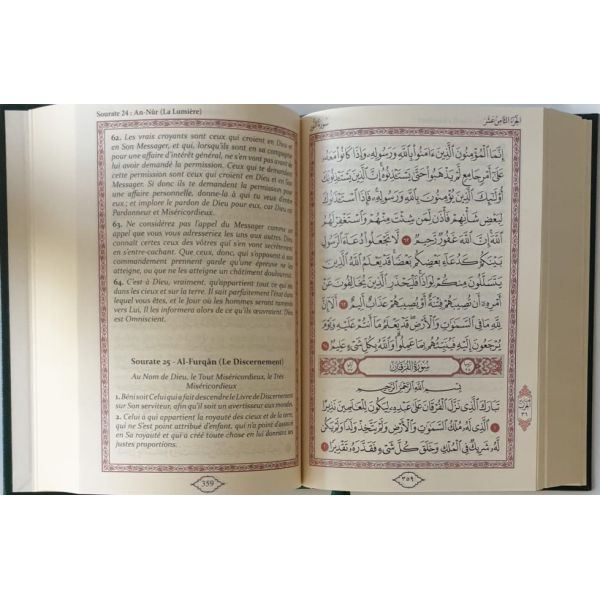 Sourate 24 : An-Nûr (La Lumière)
62. Les vrais croyants sont ceux qui croient en Dieu et
en Son Messager, et qui, lorsqu'ils sont en sa compagnie
pour une affaire d'intérêt général, ne s'en vont pas avant de
lui avoir demandé la permission. Ceux qui te demandent
cette permission sont ceux qui croient en Dieu et en Son
Messager. Si donc ils te demandent la permission pour
une affaire personnelle, donne-la à qui tu veux d'entre
eux ; et implore le pardon de Dieu pour eux, car Dieu est
Pardonneur et Miséricordieux.
63. Ne considérez pas l'appel du Messager comme un
appel que vous vous adresseriez les uns aux autres. Dieu
connaît certes ceux des vôtres qui s'en vont secrètement
en s'entre-cachant. Que ceux, donc, qui s'opposent à son
commandement prennent garde qu'une épreuve ne les
atteigne, ou que ne les atteigne un châtiment douloureux.
64. C'est à Dieu, vraiment, qu'appartient tout ce qui est
dans les cieux et sur la terre. Il sait parfaitement l'état dans
lequel vous êtes, et le Jour où les hommes seront ramenés
vers Lui, Il les informera alors de ce qu'ils œuvraient. Dieu
est Omniscient.
Sourate 25 - Al-Furqân (Le Discernement)
Au Nom de Dieu, le Tout Miséricordieux, le Très
Miséricordieux
1. Béni soit Celui qui a fait descendre le Livre de Discernement
sur Son serviteur, afin qu'il soit un avertisseur au monde.
2. Celui à qui appartient la royauté des cieux et de la terre,
qui ne S'est point attribué d'enfant, qui n'a point d'associé
en Sa royauté et qui a créé toute chose en lui donnant ses
justes proportions.
359
الجزء الثامن عشر
سورة النور
إِنَّمَا الْمُؤْمِنُونَ الَّذِينَ ءَامَنُوا بِاللَّهِ وَرَسُولِهِ وَإِذَا كَانُوا مَعَهُ
عَلَىٰ أَمْرٍ جَامِعٍ لَّمْ يَذْهَبُوا حَتَّىٰ يَسْتَـْٔذِنُوهُ إِنَّ الَّذِينَ يَسْتَـْٔذِنُونَكَ
أُولَٰئِكَ الَّذِينَ يُؤْمِنُونَ بِاللَّهِ وَرَسُولِهِ فَإِذَا اسْتَـْٔذَنُوكَ
لِبَعْضِ شَأْنِهِمْ فَأْذَن لِّمَن شِئْتَ مِنْهُمْ وَاسْتَغْفِرْ لَهُمُ
اللَّهَ إِنَّ اللَّهَ غَفُورٌ رَّحِيمٌ ٦٢ لَّا تَجْعَلُوا دُعَاءَ الرَّسُولِ
بَيْنَكُمْ كَدُعَاءِ بَعْضِكُم بَعْضًا قَدْ يَعْلَمُ اللَّهُ الَّذِينَ
يَتَسَلَّلُونَ مِنكُمْ لِوَاذًا فَلْيَحْذَرِ الَّذِينَ يُخَالِفُونَ عَنْ
أَمْرِهِ أَن تُصِيبَهُمْ فِتْنَةٌ أَوْ يُصِيبَهُمْ عَذَابٌ أَلِيمٌ ٦٣ أَلَا إِنَّ
لِلَّهِ مَا فِي السَّمَٰوَٰتِ وَالْأَرْضِ قَدْ يَعْلَمُ مَا أَنتُمْ عَلَيْهِ وَيَوْمَ
يُرْجَعُونَ إِلَيْهِ فَيُنَبِّئُهُم بِمَا عَمِلُوا وَاللَّهُ بِكُلِّ شَيْءٍ عَلِيمٌ ٦٤
سُورَةُ الْفُرْقَانِ
بِسْمِ اللَّهِ الرَّحْمَٰنِ الرَّحِيمِ
تَبَارَكَ الَّذِي نَزَّلَ الْفُرْقَانَ عَلَىٰ عَبْدِهِ لِيَكُونَ لِلْعَالَمِينَ نَذِيرًا
١ الَّذِي لَهُ مُلْكُ السَّمَٰوَٰتِ وَالْأَرْضِ وَلَمْ يَتَّخِذْ وَلَدًا وَلَمْ يَكُن
لَّهُ شَرِيكٌ فِي الْمُلْكِ وَخَلَقَ كُلَّ شَيْءٍ فَقَدَّرَهُ تَقْدِيرًا ٢
٣٥٩